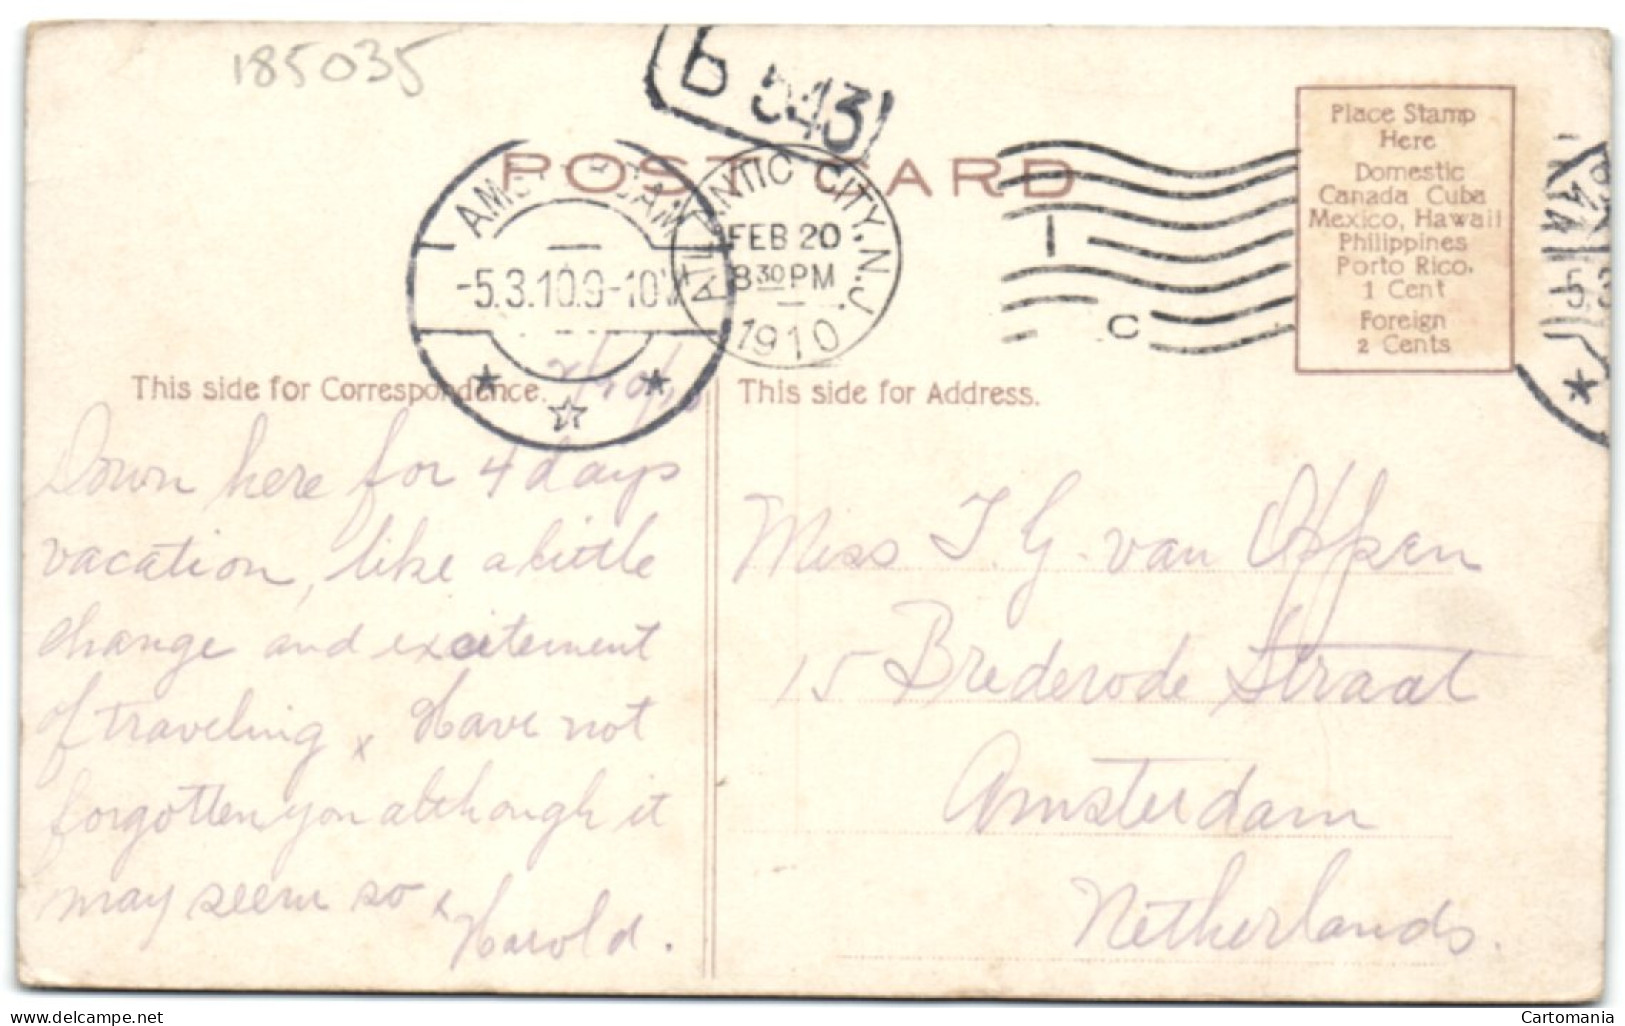 185035
b 543
POST CARD
AMSTERDAM
-5.3.10.9-10V
ATLANTIC CITY, N.J.
FEB 20
8 30 PM
1910
1
C
Place Stamp
Here
Domestic
Canada Cuba
Mexico, Hawaii
Philippines
Porto Rico,
1 Cent
Foreign
2 Cents
This side for Correspondence.
2/20/10
Down here for 4 days
vacation, like a little
change and excitement
of traveling x Have not
forgotten you although it
may seem so x
Harold.
This side for Address.
Miss J. G. van Offen
15 Brederode Straat
Amsterdam
Netherlands.
www.delcampe.net
Cartomania